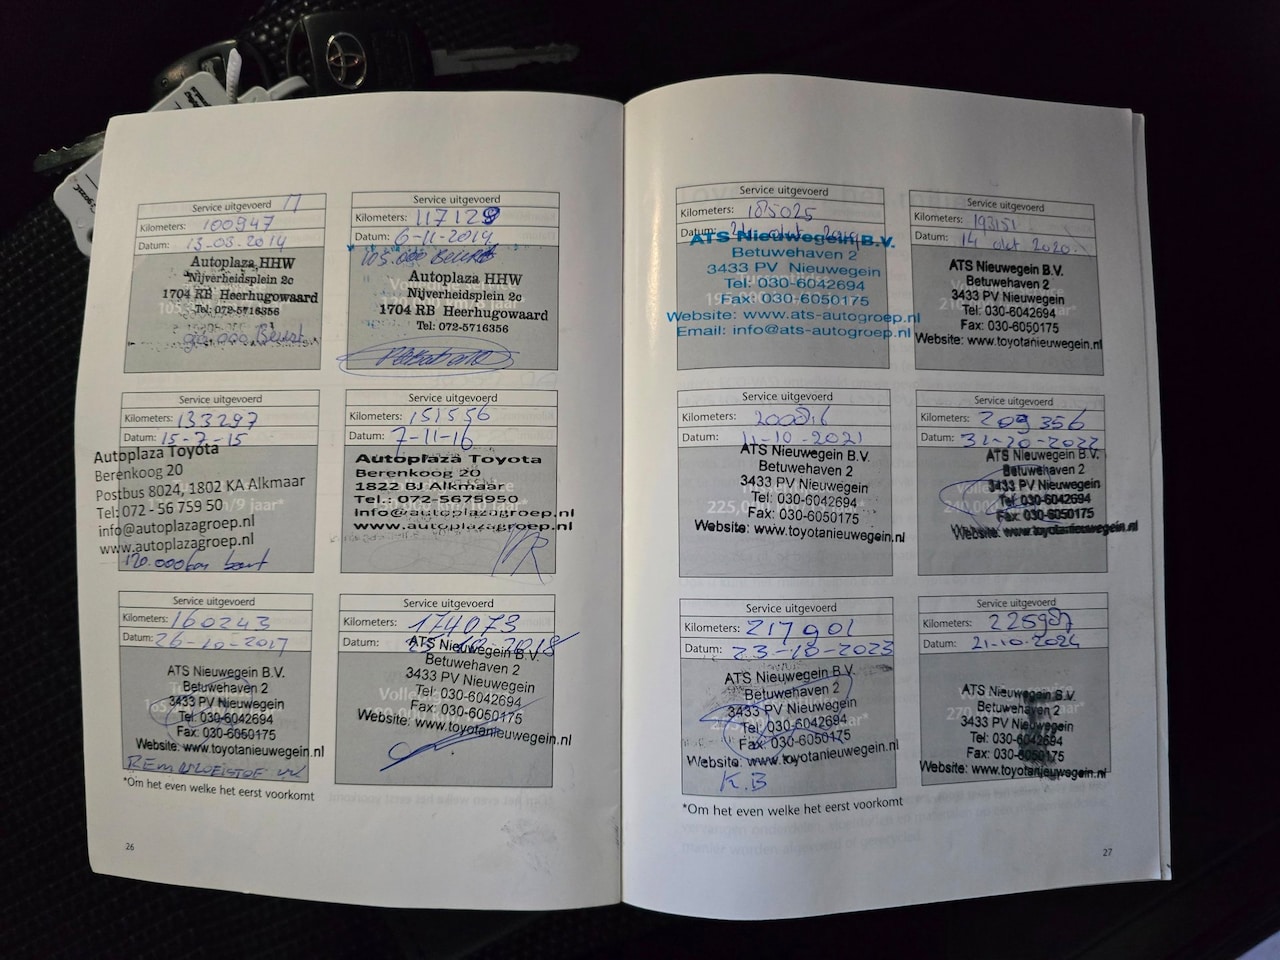 Service uitgevoerd
Kilometers: 100947
Datum: 13-03-2014
Autoplaza HHW
Nijverheidsplein 2c
1704 RB Heerhugowaard
Tel: 072-5716356
90.000 Beurt
Service uitgevoerd
Kilometers: 117129
Datum: 6-11-2014
105.000 Beurt
Autoplaza HHW
Nijverheidsplein 2c
1704 RB Heerhugowaard
Tel: 072-5716356
Service uitgevoerd
Kilometers: 133297
Datum: 15-7-15
Autoplaza Toyota
Berenkoog 20
Postbus 8024, 1802 KA Alkmaar
Tel: 072 - 56 759 50
info@autoplazagroep.nl
www.autoplazagroep.nl
120.000km beurt
Service uitgevoerd
Kilometers: 151556
Datum: 7-11-16
Autoplaza Toyota
Berenkoog 20
1822 BJ Alkmaar
Tel.: 072-5675950
info@autoplazagroep.nl
www.autoplazagroep.nl
Service uitgevoerd
Kilometers: 160243
Datum: 26-10-2017
ATS Nieuwegein B.V.
Betuwehaven 2
3433 PV Nieuwegein
Tel: 030-6042694
Fax: 030-6050175
Website: www.toyotanieuwegein.nl
REMVLOEISTOF VV
Service uitgevoerd
Kilometers: 174073
Datum: 10-2018
ATS Nieuwegein B.V.
Betuwehaven 2
3433 PV Nieuwegein
Tel: 030-6042694
Fax: 030-6050175
Website: www.toyotanieuwegein.nl
*Om het even welke het eerst voorkomt
26
Service uitgevoerd
Kilometers: 185025
Datum: okt 2019
ATS Nieuwegein B.V.
Betuwehaven 2
3433 PV Nieuwegein
Tel: 030-6042694
Fax: 030-6050175
Website: www.ats-autogroep.nl
Email: info@ats-autogroep.nl
Service uitgevoerd
Kilometers: 193151
Datum: 14 okt 2020
ATS Nieuwegein B.V.
Betuwehaven 2
3433 PV Nieuwegein
Tel: 030-6042694
Fax: 030-6050175
Website: www.toyotanieuwegein.nl
Service uitgevoerd
Kilometers:
Datum: 11-10-2021
ATS Nieuwegein B.V.
Betuwehaven 2
3433 PV Nieuwegein
Tel: 030-6042694
Fax: 030-6050175
Website: www.toyotanieuwegein.nl
Service uitgevoerd
Kilometers: 209356
Datum: 31-10-2022
ATS Nieuwegein B.V.
Betuwehaven 2
3433 PV Nieuwegein
Tel: 030-6042694
Fax: 030-6050175
Website: www.toyotanieuwegein.nl
Service uitgevoerd
Kilometers: 217901
Datum: 23-10-2023
ATS Nieuwegein B.V.
Betuwehaven 2
3433 PV Nieuwegein
Tel: 030-6042694
Fax: 030-6050175
Website: www.toyotanieuwegein.nl
K.B
Service uitgevoerd
Kilometers: 225987
Datum: 21-10-2024
ATS Nieuwegein B.V.
Betuwehaven 2
3433 PV Nieuwegein
Tel: 030-6042694
Fax: 030-6050175
Website: www.toyotanieuwegein.nl
*Om het even welke het eerst voorkomt
27